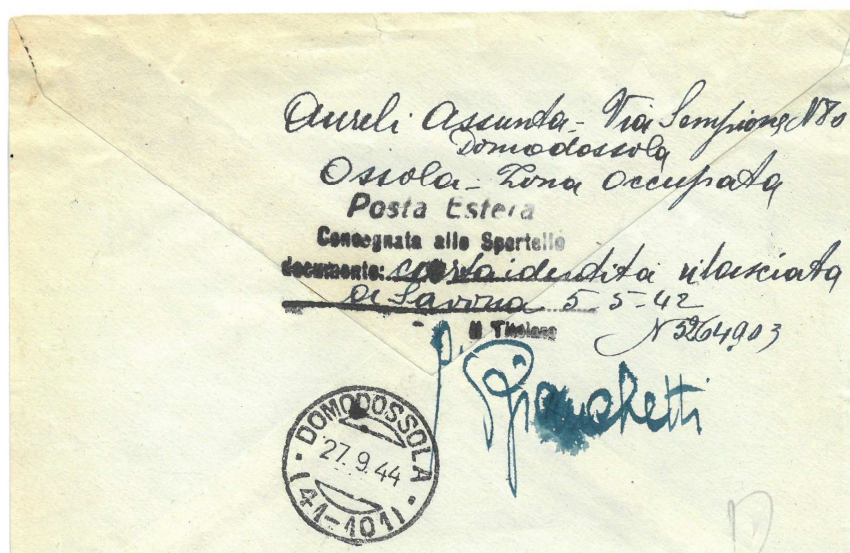 Aureli Assunta - Via Sempione N 80
Domodossola
Ossola - Zona Occupata
Posta Estera
Consegnata allo Sportello
documento: carta identità rilasciata
di Savona 5-5-42
N 5264903
Il Titolare
DOMODOSSOLA
27.9.44
(41-101)